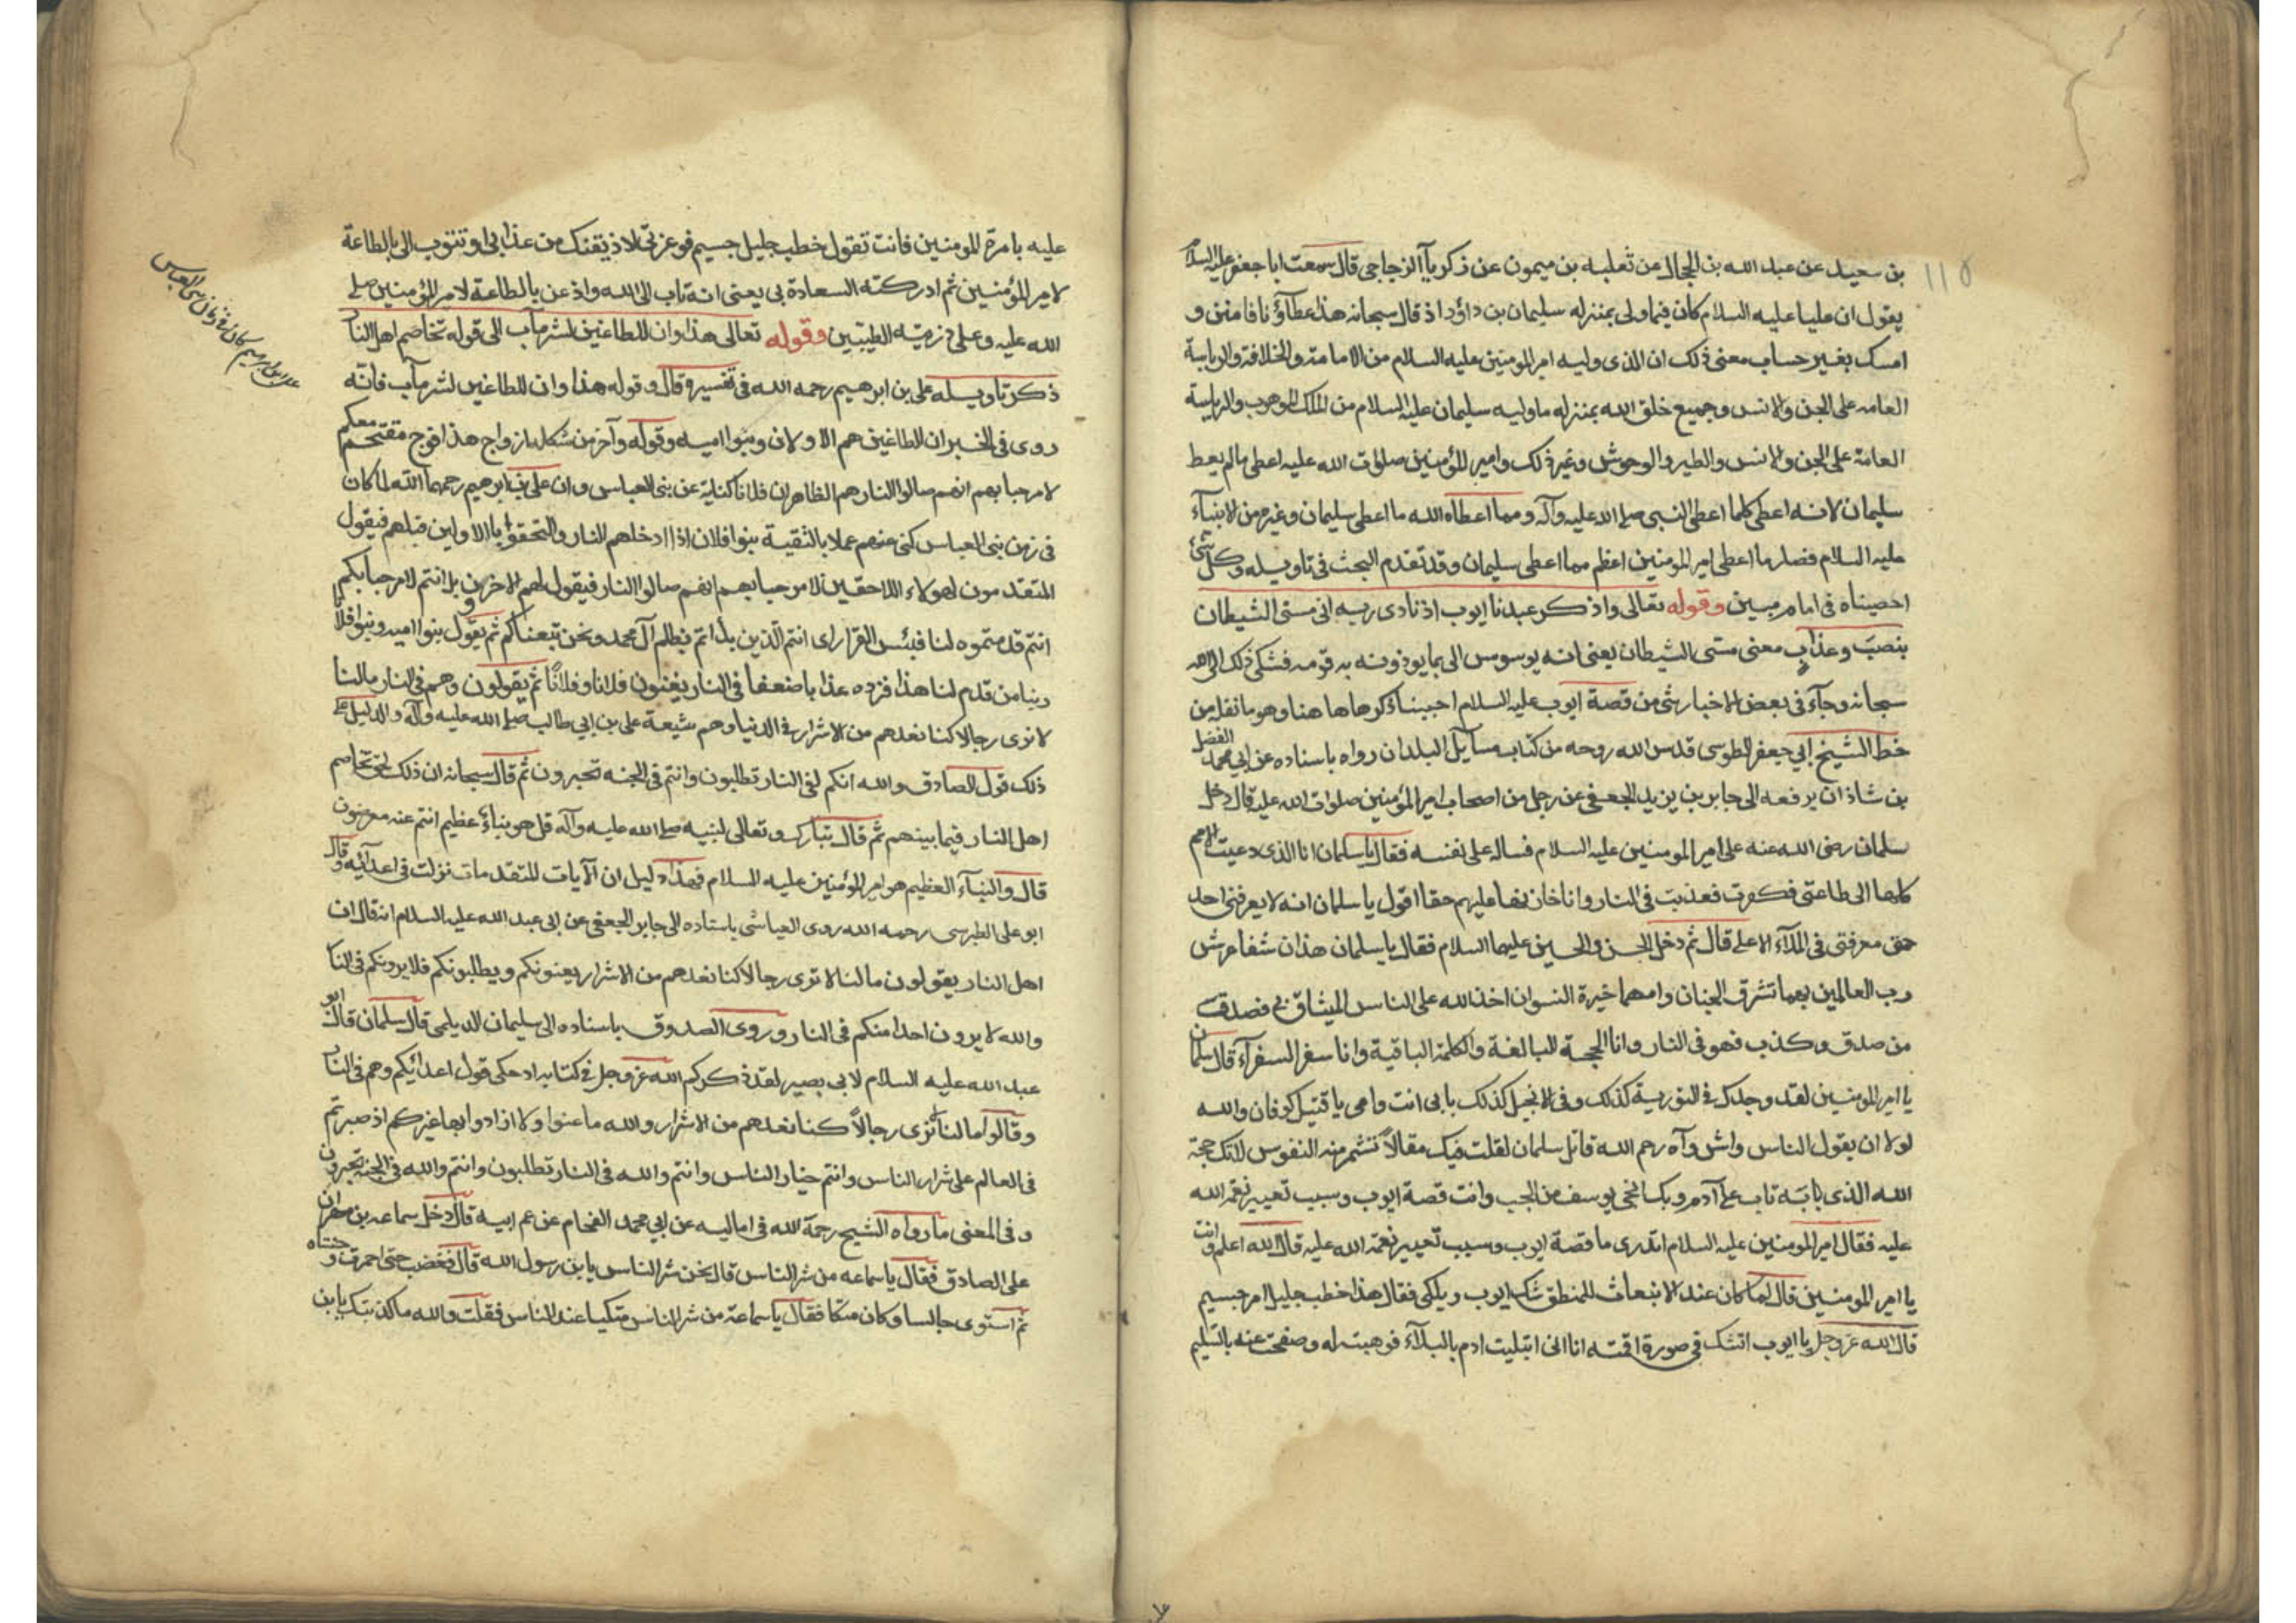 بن سعيد عن عبد الله بن الحجال عن ثعلبه بن ميمون عن زكريا الزجاجى قال سمعت ابا جعفر عليه السلام
يقول ان عليا عليه السلام كان فيما ولى بمنزله سليمان بن داؤد اذ قال سبحانه هذا عطاؤنا فامنن و
امسك بغير حساب معنى ذلك ان الذى وليه امير المومنين عليه السلام من الامامته والخلافة والرياسة
العامه على الجن والانس وجميع خلق الله بمنزله ما وليه سليمان عليه السلام من الملك الموهوب والرياسة
العامة على الجن والانس والطير والوحوش وغير ذلك وامير المؤمنين صلوات الله عليه اعطى ما لم يعط
سليمان لانه اعطى كلما اعطى النبى صلى الله عليه وآله ومما اعطاه الله ما اعطى سليمان وغيره من الانبيآء
عليه السلام فصار ما اعطى امير المومنين اعظم مما اعطى سليمان وقد تقدم البحث فى تاويله وكل شئ
احصيناه فى امام مبين وقوله تعالى واذكر عبدنا ايوب اذ نادى ربه انى مسنى الشيطان
بنصب وعذاب معنى مسنى الشيطان يعنى انه يوسوس الى بما يوذونه به قومه فشكى ذلك الى الله
سبحانه وجآء فى بعض الاخبار شئ من قصة ايوب عليه السلام احببنا ذكرها هاهنا وهو ما نقل من
خط الشيخ ابي جعفر الطوسى قدس الله روحه من كتاب مسآيل البلدان رواه باسناده عن ابي محمد الفضل
بن شاذان يرفعه الى جابر بن يزيد الجعفى عن رجل من اصحاب امير المؤمنين صلوات الله عليه قال دخل
سلمان رضى الله عنه على امير المومنين عليه السلام فساله على نفسه فقال يا سلمان انا الذى دعيت الامم
كلها الى طاعتى فكفرت فعذبت فى النار وانا خازنها عليهم حقا اقول يا سلمان انه لا يعرفنى احد
حق معرفتى فى الملآء الاعلى قال ثم دخل الحسن والحسين عليهما السلام فقال يا سلمان هذان شنفا عرش
رب العالمين بهما تشرق الجنان وامهما خيرة النسوان اخذ الله على الناس الميثاق بي فصدق
من صدق وكذب فهو فى النار وانا الحجة البالغة والكلمة الباقية وانا سفير السفرآء قال سلمان
يا امير المومنين لقد وجدك فى التورية كذلك وفى الانجيل كذلك بابى انت وامى يا قتيل كوفان والله
لولا ان يقول الناس واش وآه رحم الله قاتل سلمان لقلت فيك مقالاً تشمئز منه النفوس لانك حجة
الله الذى به تاب على آدم وبك انجى يوسف من الجب وانت قصة ايوب وسبب تغيير نعمة الله
عليه فقال امير المومنين عليه السلام اتدرى ما قصة ايوب وسبب تغيير نعمة الله عليه قال الله اعلم وانت
يا امير المومنين قال لما كان عند الانبعاث للمنطق شك ايوب وبكى فقال هذا خطب جليل امر جسيم
قال الله عز وجل يا ايوب اتشك فى صورة اقمته انا انى ابتليت ادم بالبلآء فوهبته له وصفحت عنه بالتسليم
عليه بامرة المومنين فانت تقول خطب جليل جسيم فوعزتى لاذيقنك من عذابى او تتوب الى بالطاعة
لامير المؤمنين ثم ادركته السعادة بي يعنى انه تاب الى الله واذعن بالطاعة لامير المؤمنين صلى
الله عليه وعلى ذريته الطيبين وقوله تعالى هذا وان للطاغين لشر مآب الى قوله تخاصم اهل النار
ذكر تاويله على بن ابرهيم رحمه الله فى تفسيره قال وقوله هذا وان للطاغين لشر مآب فانه
روى فى الخبر ان الطاغين هم الاولان وبنوا اميه وقوله وآخر من شكله ازواج هذا فوج مقتحم معكم
لا مرحبا بهم انهم صالوا النار هم الظاهر ان فلانا كناية عن بنى العباس وان على بن ابرهيم رحمهما الله لما كان
فى زمن بنى العباس كنى عنهم عملا بالتقية بنوا فلان اذا ادخلهم النار والتحقوا بالاولين قبلهم فيقول
المتقدمون لهولاء اللاحقين لا مرحبا بهم انهم صالوا النار فيقول لهم الاخرون بل انتم لا مرحبا بكم
انتم قدمتموه لنا فبئس القرار اى انتم الذين بداتم بظلم آل محمد ونحن تبعناكم ثم يقول بنوا اميه وبنوا فلان
ربنا من قدم لنا هذا فزده عذابا ضعفا فى النار يعنون فلانا وفلاناً ثم يقولون وهم فى النار ما لنا
لا نرى رجالا كنا نعدهم من الاشرار فى الدنيا وهم شيعة على بن ابي طالب صلى الله عليه وآله والدليل على
ذلك قول الصادق والله انكم لفى النار تطلبون وانتم فى الجنه تحبرون ثم قال سبحانه ان ذلك لحق تخاصم
اهل النار فيما بينهم ثم قال تبارك وتعالى لنبيه صلى الله عليه وآله قل هو نباءٌ عظيم انتم عنه معرضون
قال والنبآء العظيم هو امير المؤمنين عليه السلام فهذا دليل ان الآيات المتقدمات نزلت فى اعدآئه وقال
ابو على الطبرسى رحمه الله روى العياشى باسناده الى جابر الجعفى عن ابى عبد الله عليه السلام انه قال ان
اهل النار يقولون ما لنا لا نرى رجالا كنا نعدهم من الاشرار يعنونكم ويطلبونكم فلا يرونكم فى النار
والله لا يرون احدا منكم فى النار وروى الصدوق باسناده الى سليمان الديلمى قال سلمان قال ابو
عبد الله عليه السلام لابى بصير لقد ذكركم الله عز وجل فى كتابه اذ حكى قول اعدائكم وهم فى النار
وقالوا ما لنا لا نرى رجالاً كنا نعدهم من الاشرار والله ما عنوا ولا ارادوا بها غيركم اذ صبرتم
فى العالم على شرار الناس وانتم خيار الناس وانتم والله فى النار تطلبون وانتم والله فى الجنة تحبرون
وفى المعنى ما رواه الشيخ رحمة الله فى اماليه عن ابي محمد الفحام عن عم ابيه قال دخل سماعه بن مهران
على الصادق فقال يا سماعه من شر الناس قال نحن شر الناس يا بن رسول الله قال فغضب حتى احمرت وجنتاه
ثم استوى جالسا وكان متكا فقال يا سماعة من شر الناس فقلت والله ما كذبتك يا بن
على بن ابرهيم كان فى زمان بنى العباس
عليه
١١٥